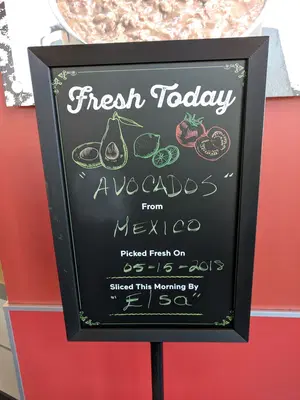 Fresh Today
"AVOCADOS"
From
MEXICO
Picked Fresh On
05-15-2018
Sliced This Morning By
"Elsa"